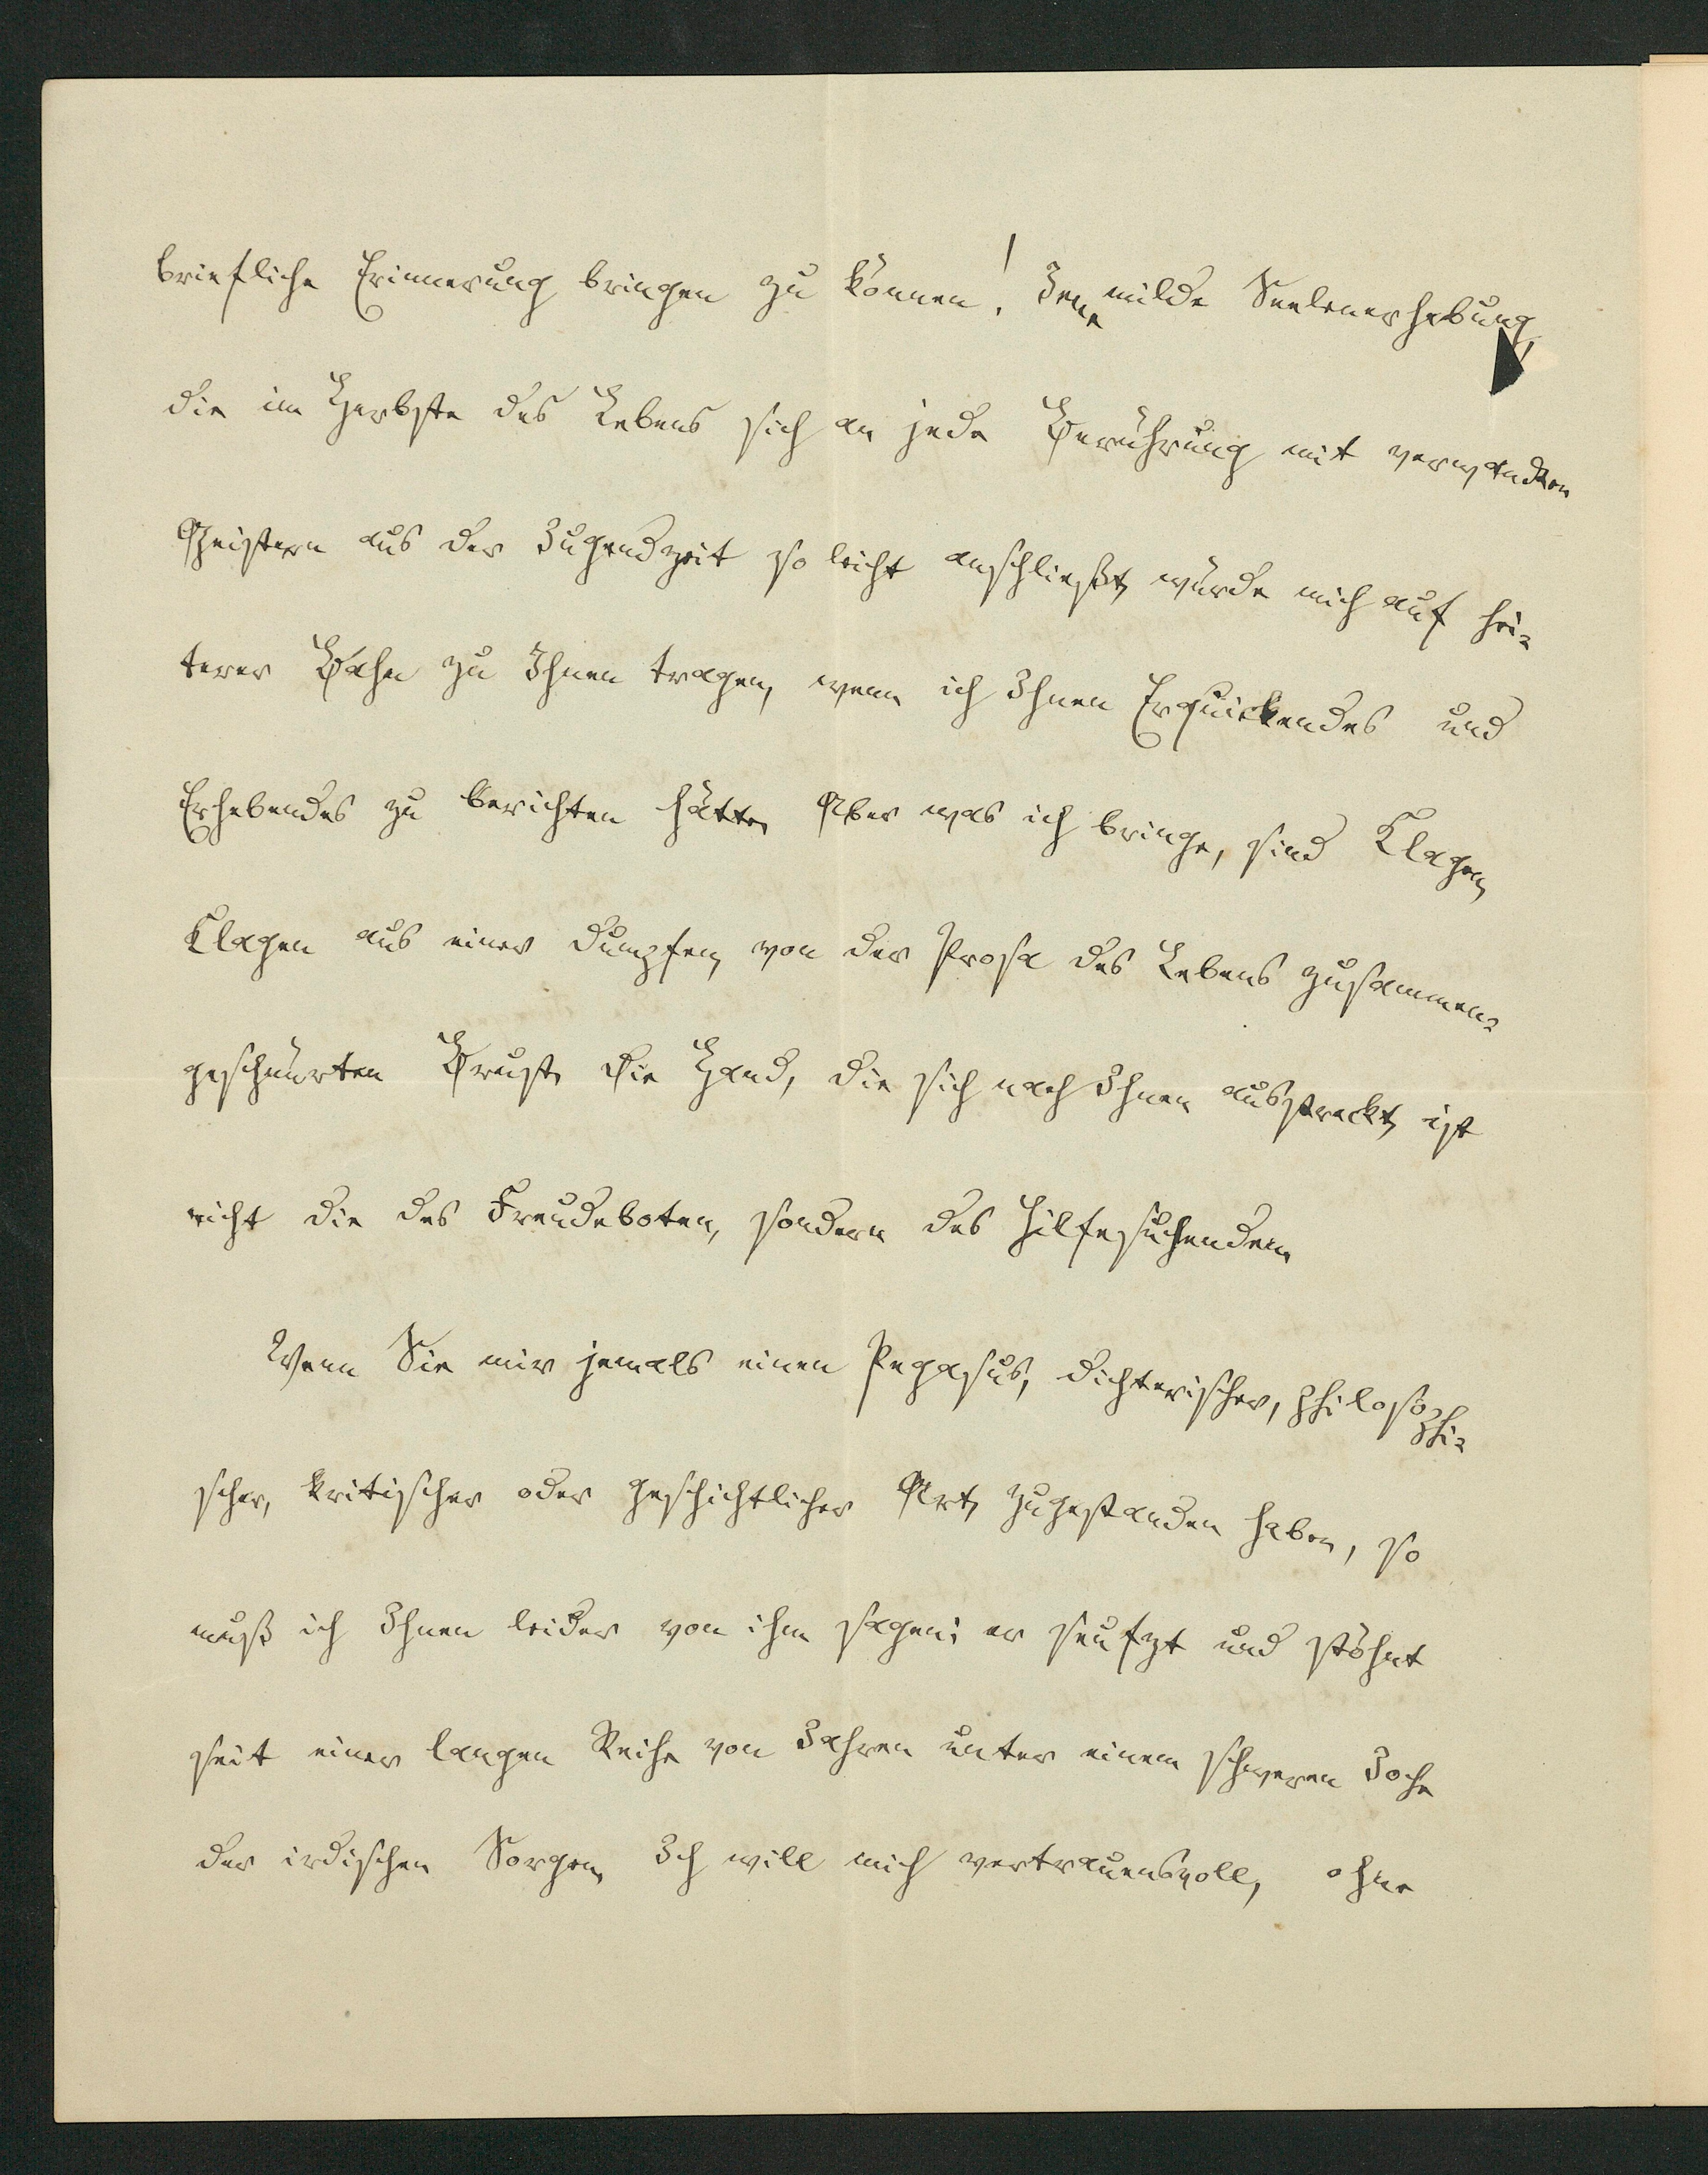 briefliche Erinnerung bringen zu können! Jene milde Seelenerhebung,
die im Herbste des Lebens sich an jede Berührung mit verwandten
Geistern aus der Jugendzeit so leicht anschließt, würde mich auf hei-
terer Bahn zu Ihnen tragen, wenn ich Ihnen Erquickendes und
Erhebendes zu berichten hätte. Aber was ich bringe, sind Klagen,
Klagen aus einer dumpfen, von der Prosa des Lebens zusammen-
geschnürten Brust. Die Hand, die sich nach Ihnen ausstreckt, ist
nicht die des Freudeboten, sondern des Hilfesuchenden.
Wenn Sie mir jemals einen Pegasus, dichterischer, philosophi-
scher, kritischer oder geschichtlicher Art, zugestanden haben, so
muß ich Ihnen leider von ihm sagen: er seufzt und stöhnt
seit einer langen Reihe von Jahren unter einem schweren Joche
der irdischen Sorgen. Ich will mich vertrauensvoll, ohne